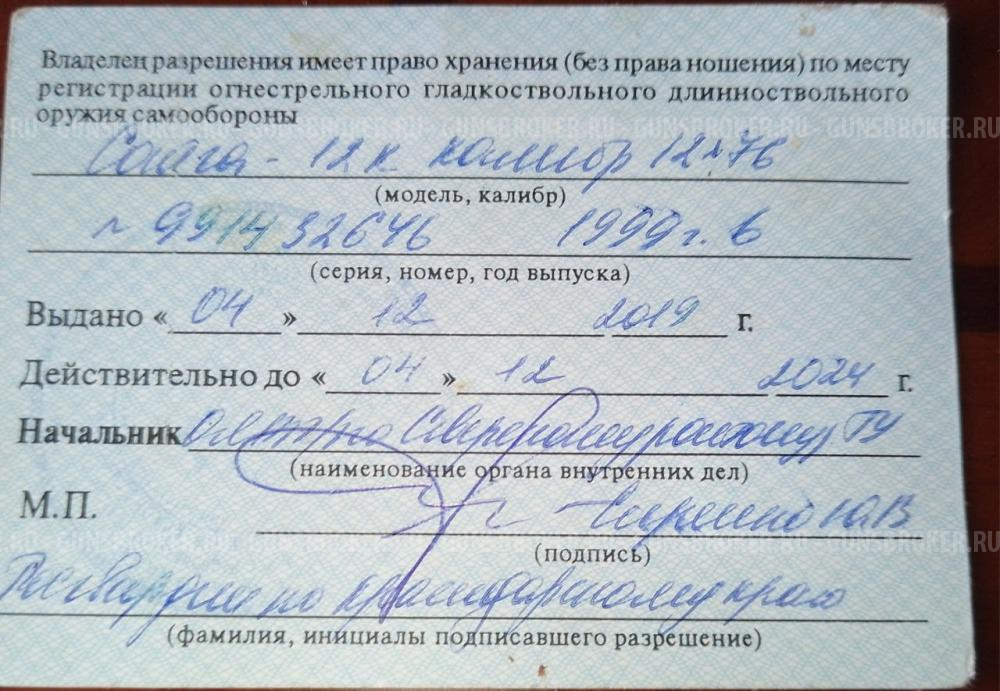 Владелец разрешения имеет право хранения (без права ношения) по месту
регистрации огнестрельного гладкоствольного длинноствольного
оружия самообороны
RU - GUNSBROKER.RU - GUNSBROKER.RU - GUNSBROKER.RU - GUNSBROKER.RU
Сайга - 12к калибр 12х76
(модель, калибр)
99143264 1999 г. в
(серия, номер, год выпуска)
Выдано « 04 » 12 2019 г.
Действительно до « 04 » 12 2024 г.
Начальник ГУ
(наименование органа внутренних дел)
М.П. Ю.В
RU - GUNSBROKER.RU - GUNSBROKER.RU - GUNSBROKER.RU - GUNSBROKER.RU
(подпись)
Росгвардии по краснодарскому краю
(фамилия, инициалы подписавшего разрешение)